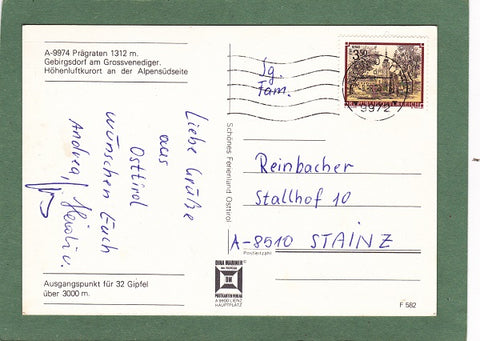 A-9974 Prägraten 1312 m.
Gebirgsdorf am Grossvenediger.
Höhenluftkurort an der Alpensüdseite
Liebe Grüße
aus
Osttirol
wünschen Euch
Andrea, Heidi u.
Ausgangspunkt für 32 Gipfel
über 3000 m.
Schönes Ferienland Osttirol
3.50
9972
Sg.
Fam.
Reinbacher
Stallhof 10
A-8510 STAINZ
Postleitzahl
DINA MARINER
DM
POSTKARTEN VERLAG
A 9900 LIENZ
HAUPTPLATZ
F 582